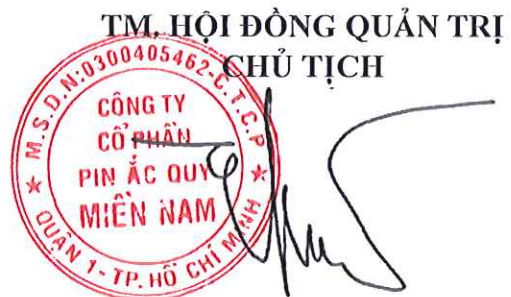 TM. HỘI ĐỒNG QUẢN TRỊ
CHỦ TỊCH
M.S.D.N:0300405462-C.T.C.P
CÔNG TY
CỔ PHẦN
PIN ẮC QUY
MIỀN NAM
QUẬN 1 - TP. HỒ CHÍ MINH